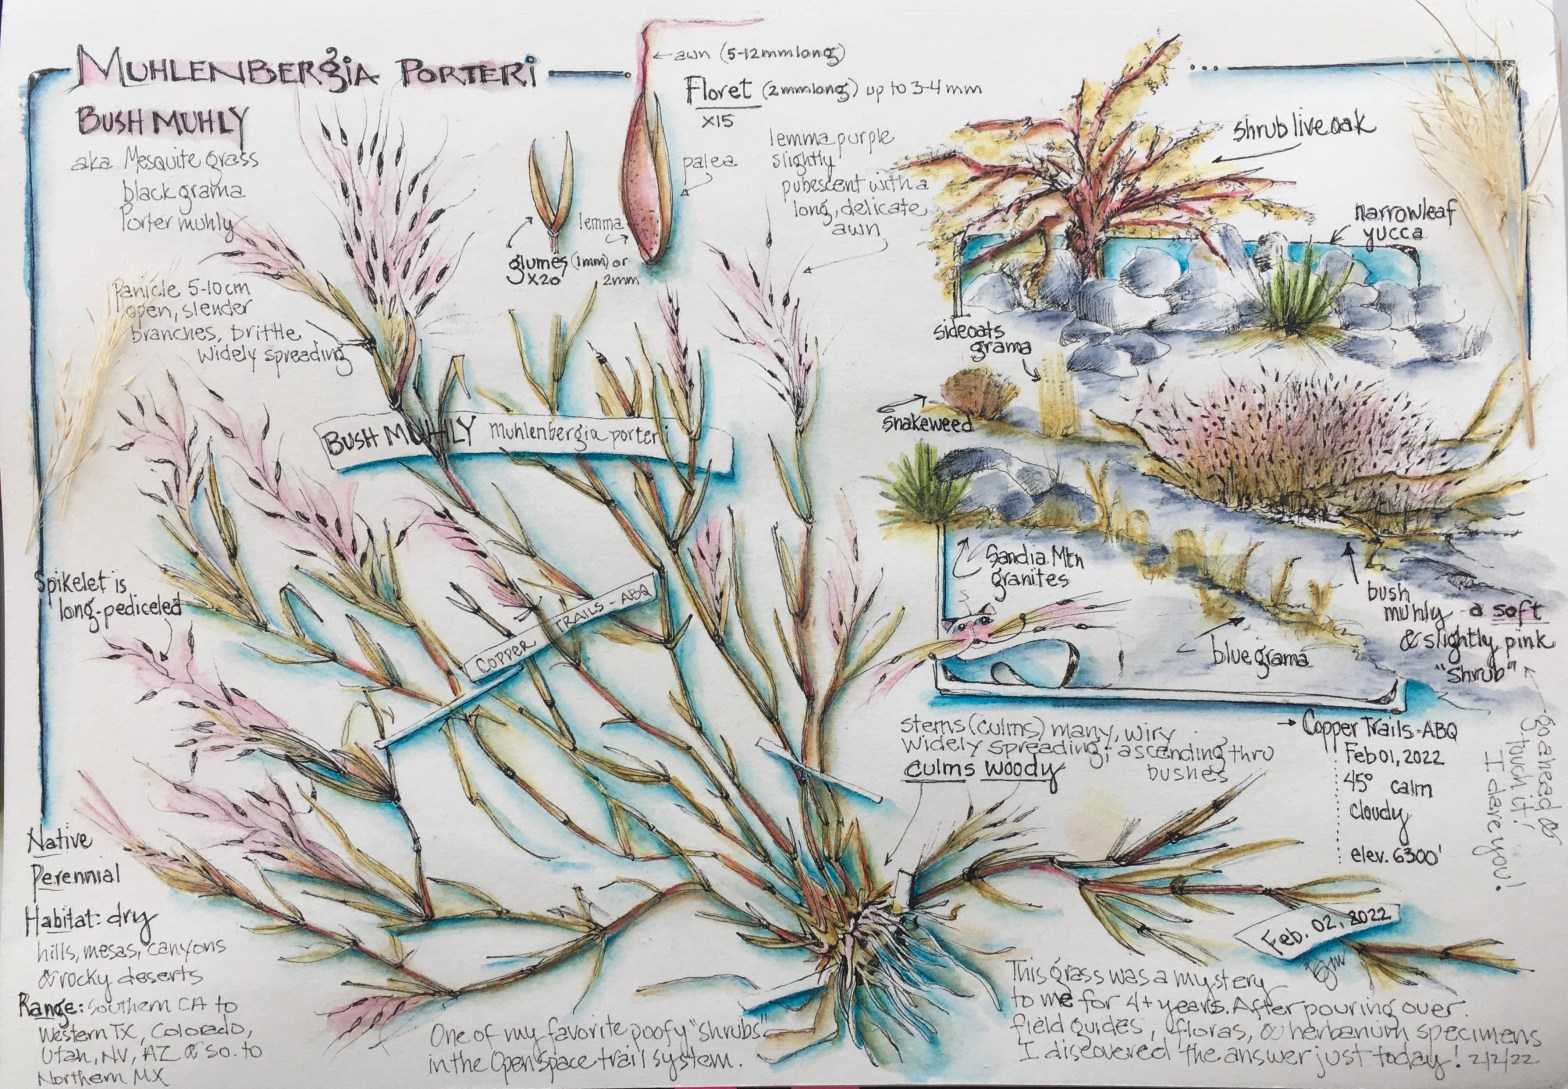 MUHLENBERGIA PORTERI
BUSH MUHLY
aka Mesquite grass
black grama
Porter muhly
awn (5-12mm long)
Floret (2mm long) up to 3-4 mm
x15
palea
lemma
glumes (1mm) or
x20 2mm
lemma purple
slightly
pubescent with a
long, delicate
awn
Panicle 5-10cm
open, slender
branches, brittle
widely spreading
BUSH MUHLY Muhlenbergia porteri
COPPER TRAILS - ABQ
Spikelet is
long-pediceled
shrub live oak
narrowleaf
yucca
sideoats
grama
snakeweed
Sandia Mtn
granites
blue grama
bush
muhly - a soft
& slightly pink
"shrub"
go ahead &
touch it!
I dare you!
stems (culms) many, wiry
widely spreading; ascending thru
bushes
culms woody
Copper Trails - ABQ
Feb 01, 2022
45° calm
cloudy
elev. 6300'
Feb. 02, 2022
Native
Perennial
Habitat: dry
hills, mesas, canyons
& rocky deserts
Range: Southern CA to
Western TX, Colorado,
Utah, NV, AZ & so. to
Northern MX
One of my favorite poofy "shrubs"
in the Open Space trail system.
This grass was a mystery
to me for 4+ years. After pouring over
field guides, floras, & herbarium specimens
I discovered the answer just today! 2/2/22